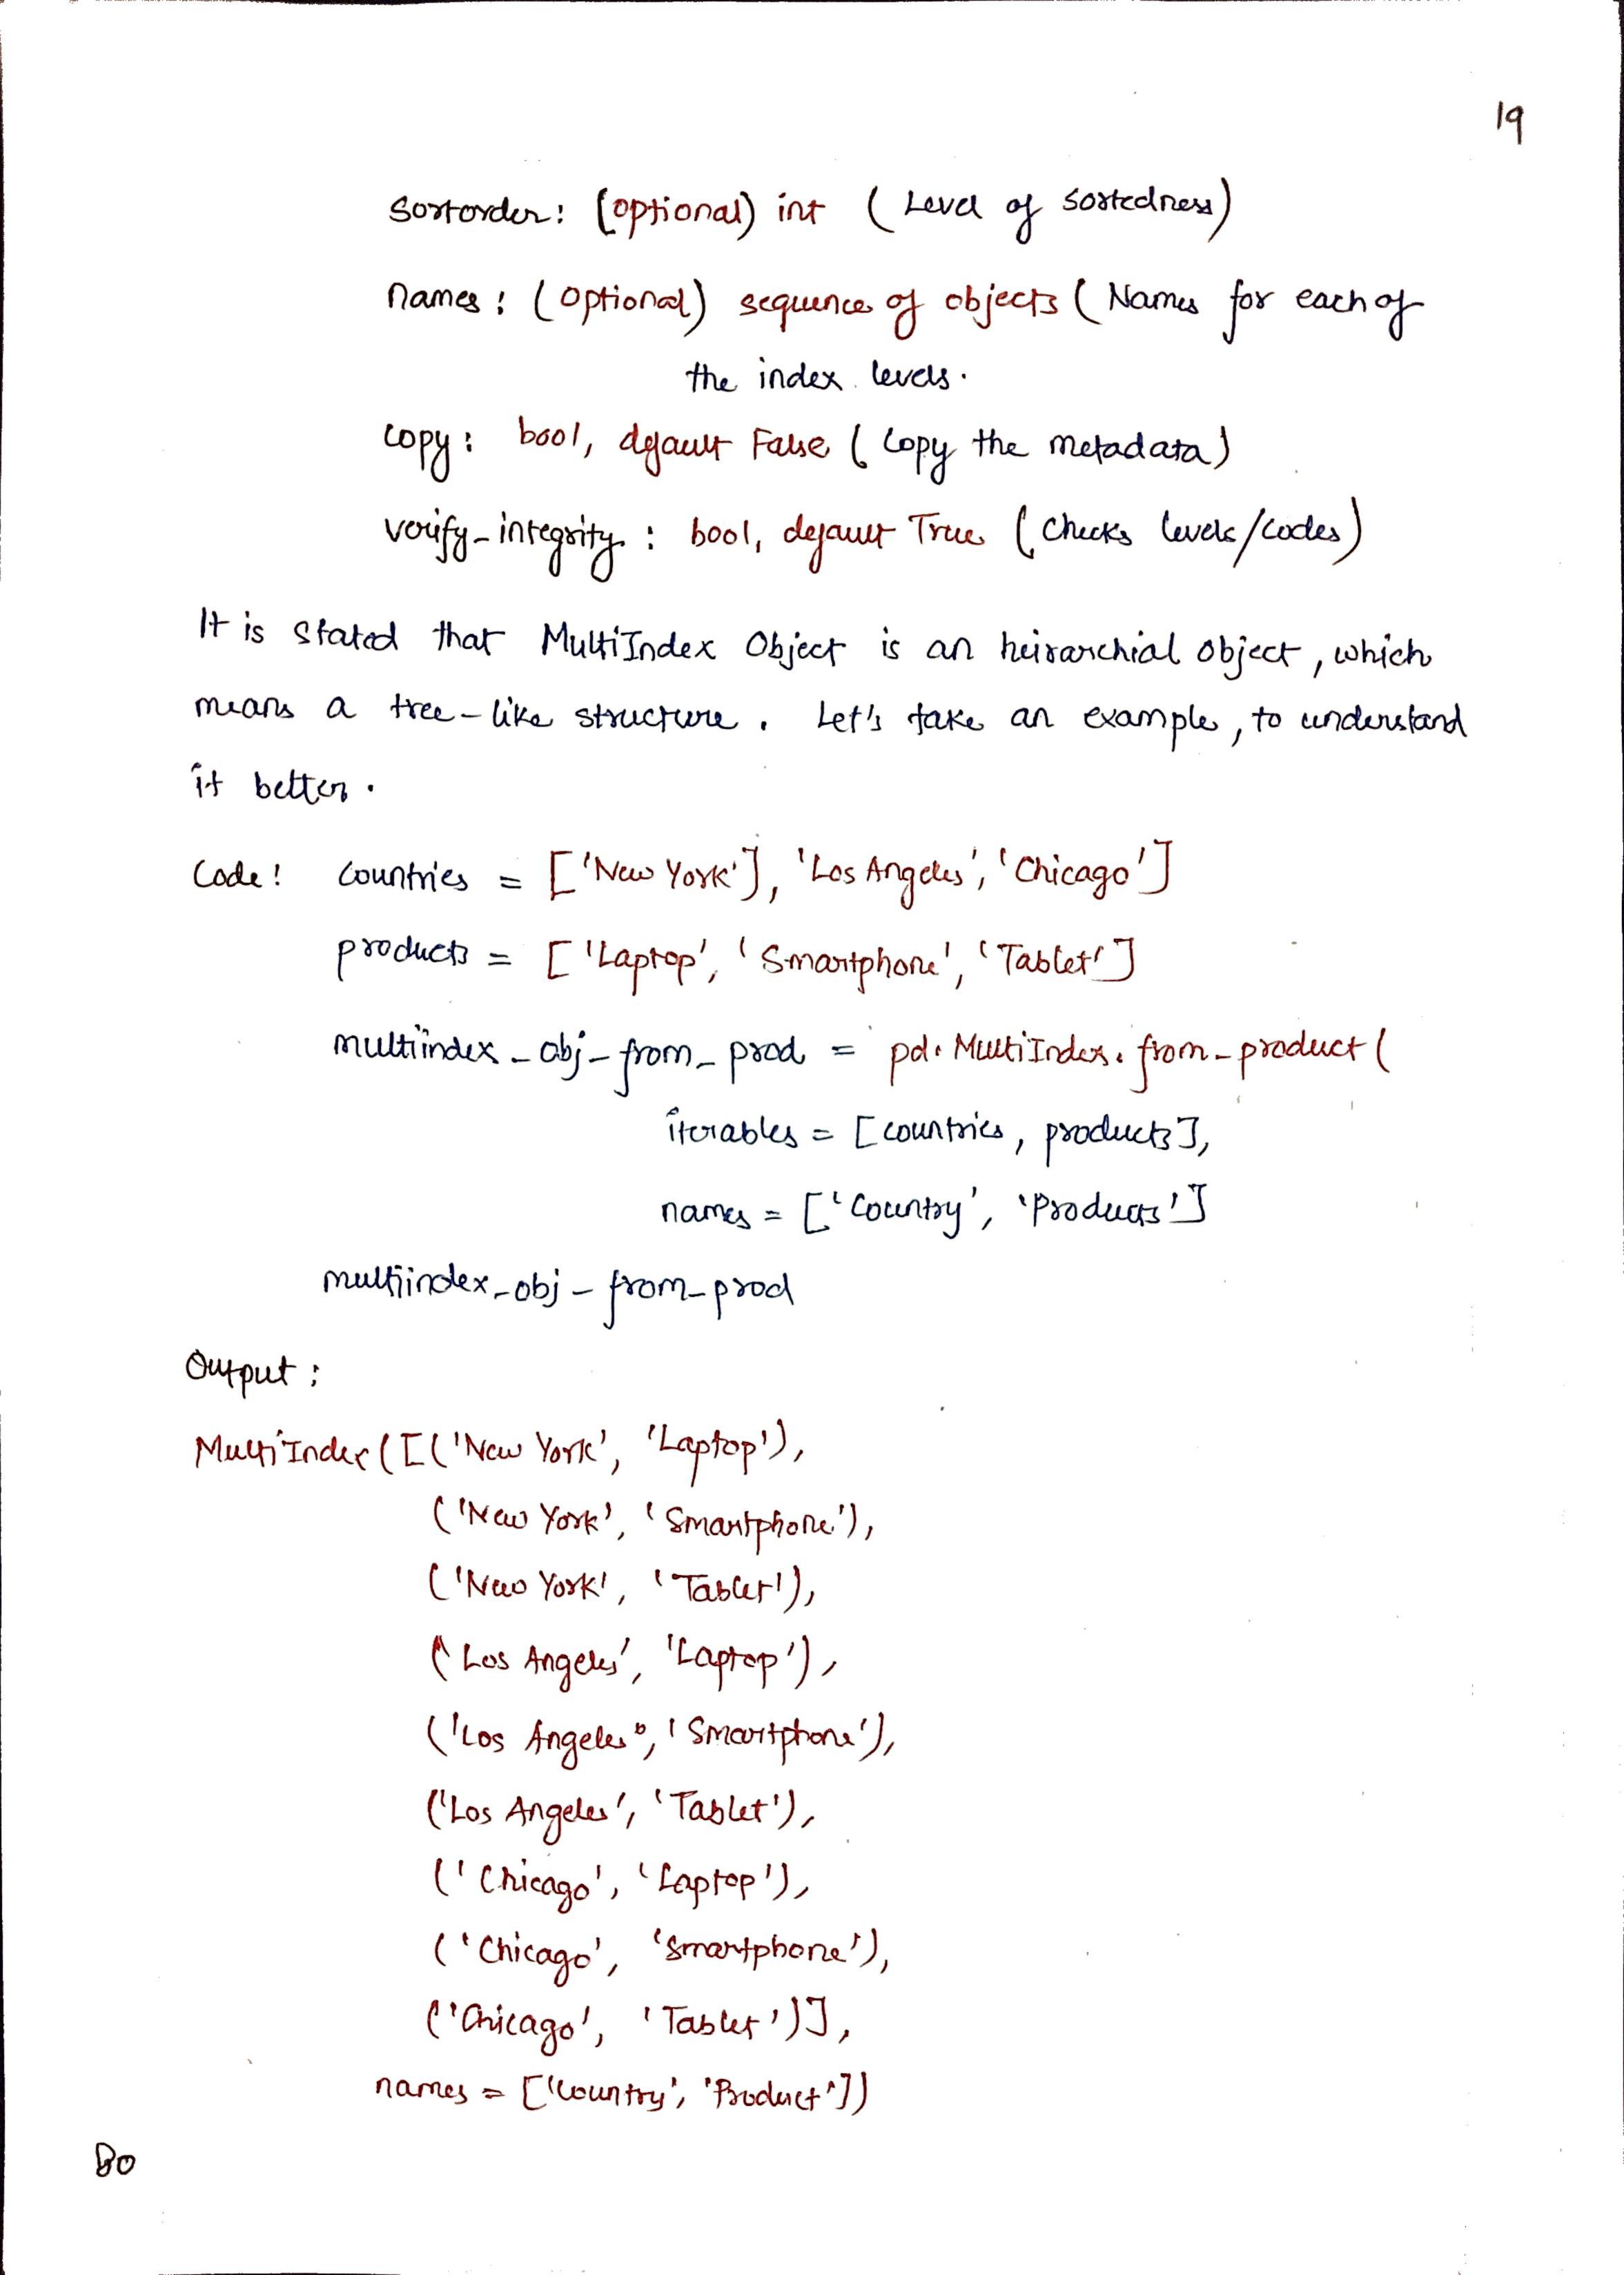 19
Sortorder: (optional) int (Level of sortedness)
names: (optional) sequence of objects (Names for each of
the index levels.
copy: bool, default False (Copy the metadata)
verify_integrity: bool, default True (Checks levels/codes)
It is stated that MultiIndex Object is an heirarchial object, which
means a tree-like structure. Let's take an example, to understand
it better.
Code: countries = ['New York'], 'Los Angeles', 'Chicago']
products = ['Laptop', 'Smartphone', 'Tablet']
multiindex_obj_from_prod = pd.MultiIndex.from_product(
iterables = [countries, products],
names = ['Country', 'Products']
multiindex_obj_from_prod
Output:
MultiIndex([('New York', 'Laptop'),
('New York', 'Smartphone'),
('New York', 'Tablet'),
('Los Angeles', 'Laptop'),
('Los Angeles', 'Smartphone'),
('Los Angeles', 'Tablet'),
('Chicago', 'Laptop'),
('Chicago', 'Smartphone'),
('Chicago', 'Tablet')],
names = ['Country', 'Product'])